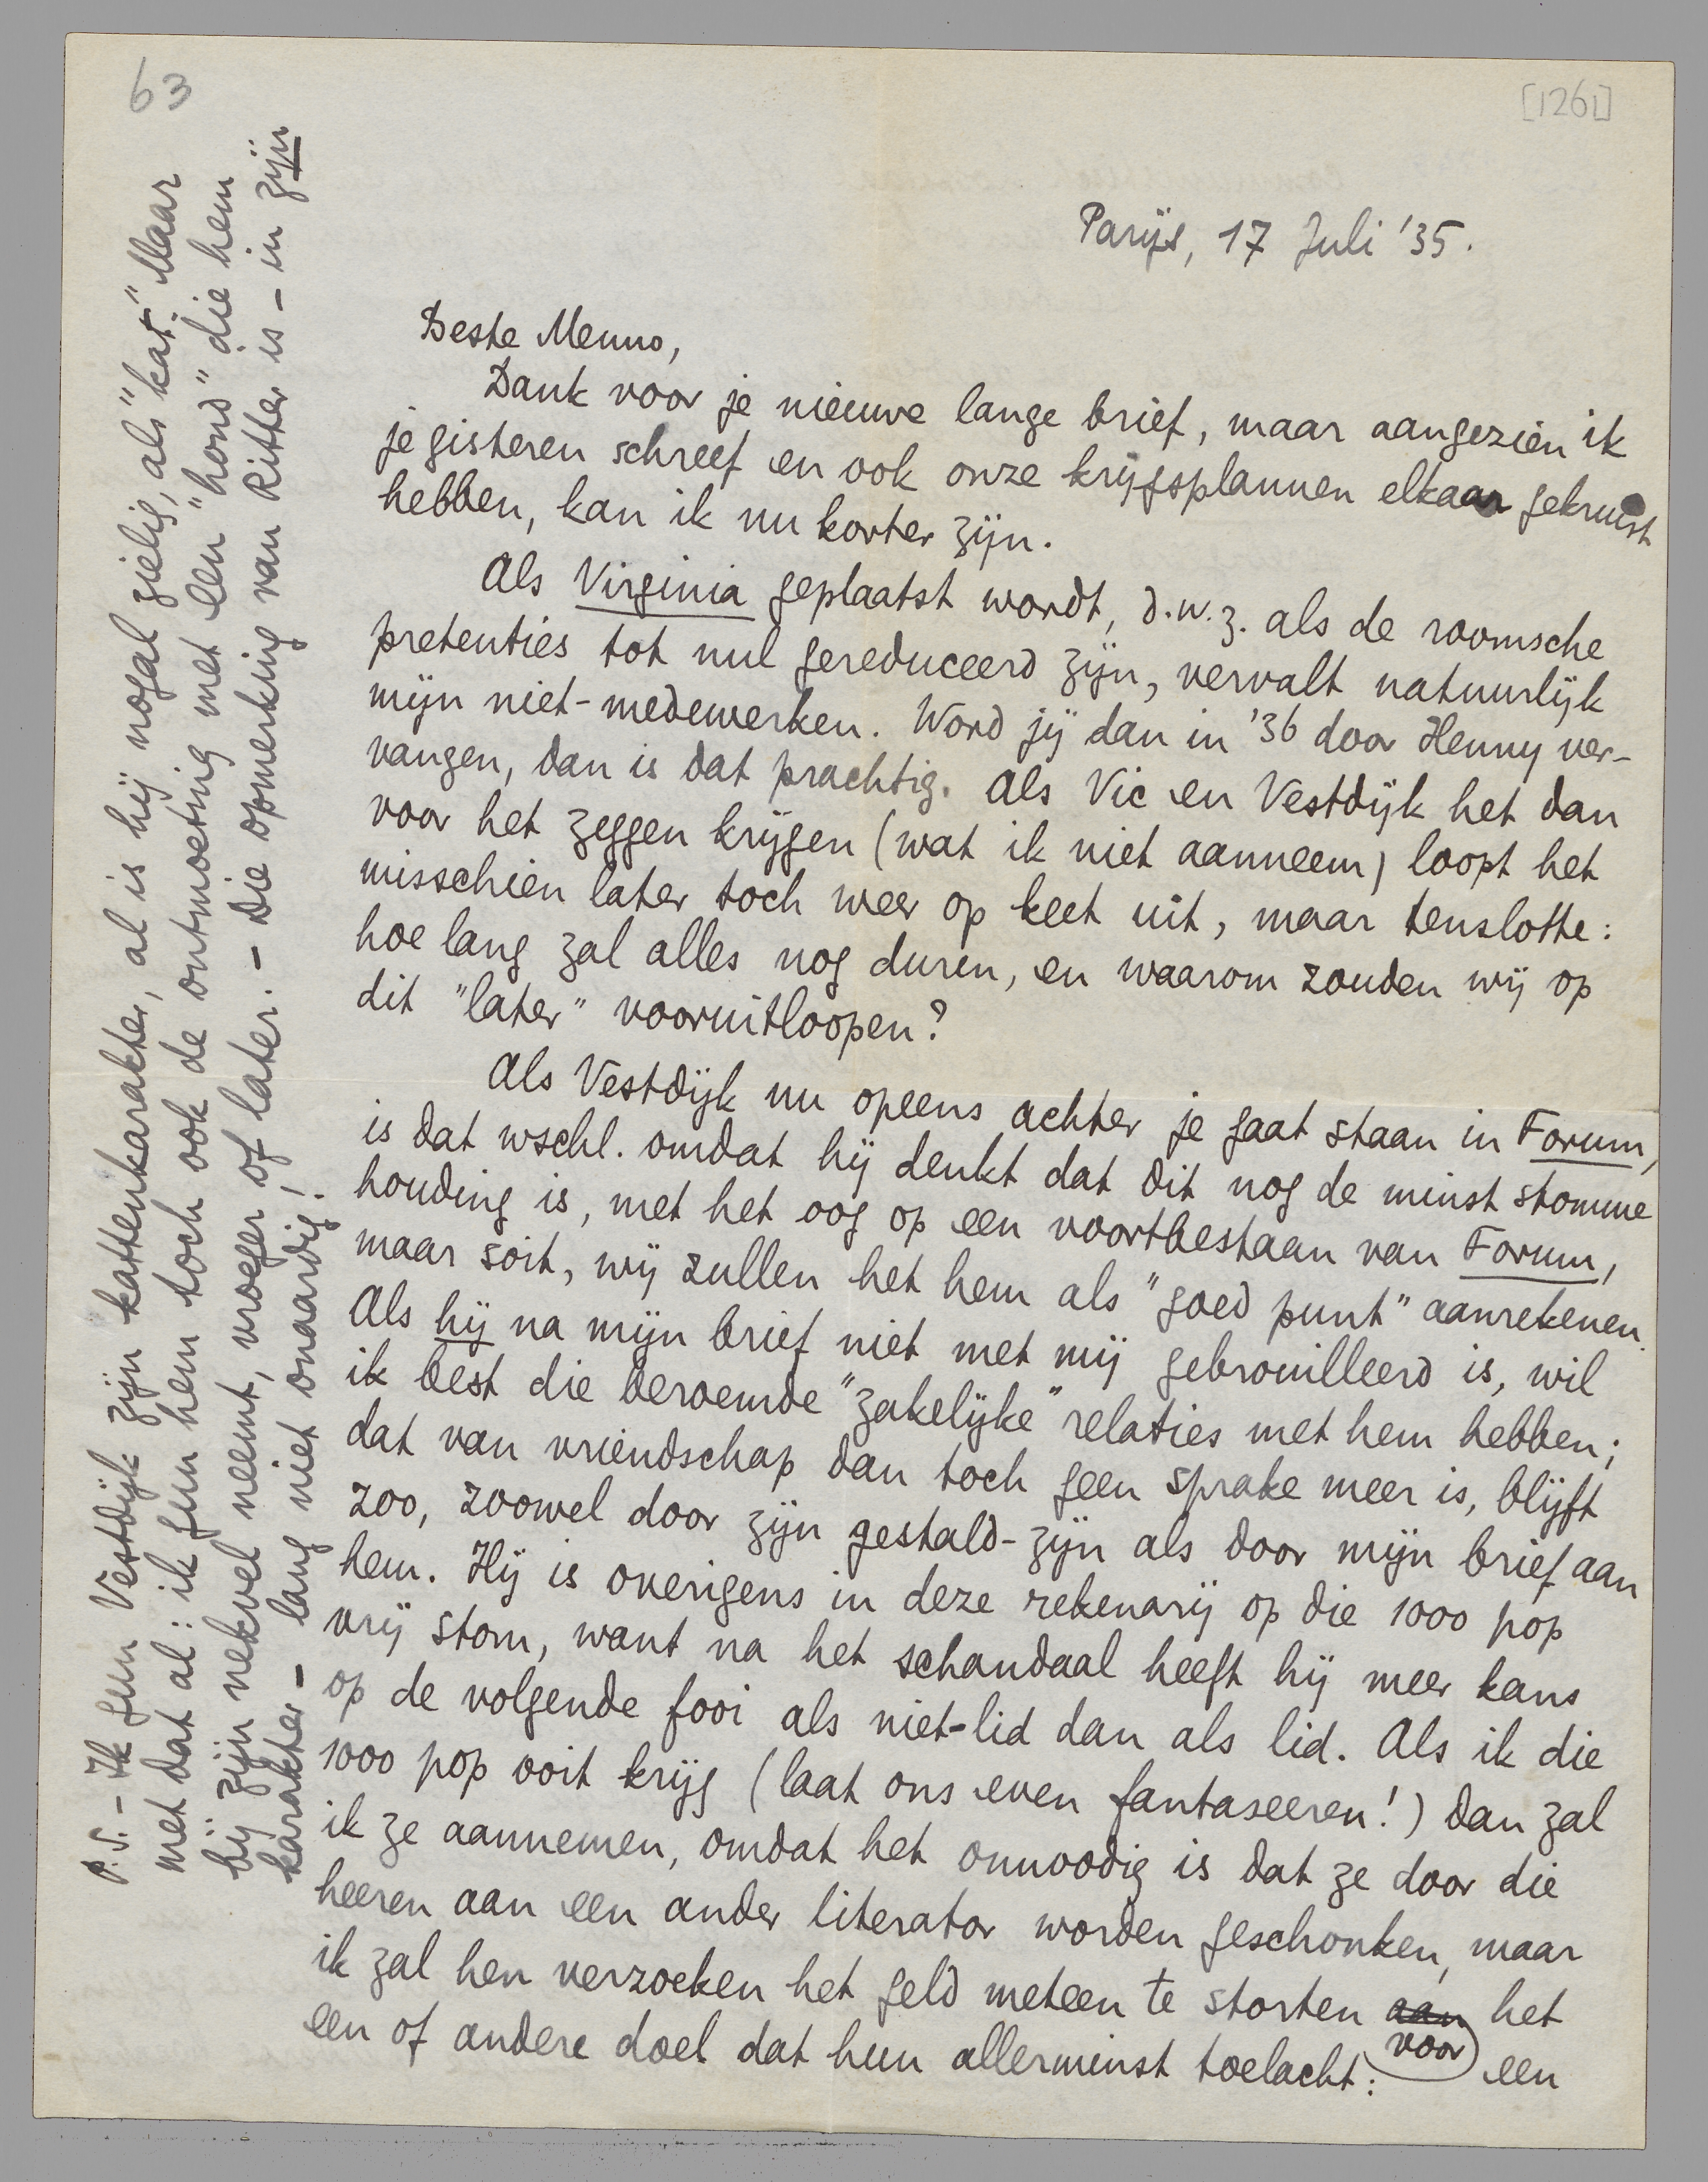 63
[1261]
Parijs, 17 Juli '35.
Beste Menno,
Dank voor je nieuwe lange brief, maar aangezien ik
je gisteren schreef en ook onze krijgsplannen elkaar gekruist
hebben, kan ik nu korter zijn.
Als Virginia geplaatst wordt, d.w.z. als de roomsche
pretenties tot nul gereduceerd zijn, vervalt natuurlijk
mijn niet-medewerken. Word jij dan in '36 door Henny ver-
vangen, dan is dat prachtig. Als Vic en Vestdijk het dan
voor het zeggen krijgen (wat ik niet aanneem) loopt het
misschien later toch weer op keet uit, maar tenslotte:
hoe lang zal alles nog duren, en waarom zouden wij op
dit "later" vooruitloopen?
Als Vestdijk nu opeens achter je gaat staan in Forum,
is dat wschl. omdat hij denkt dat dit nog de minst stomme
houding is, met het oog op een voortbestaan van Forum,
maar soit, wij zullen het hem als "goed punt" aanrekenen.
Als hij na mijn brief niet met mij gebrouilleerd is, wil
ik best die beroemde "zakelijke" relaties met hem hebben;
dat van vriendschap dan toch geen sprake meer is, blijft
zoo, zoowel door zijn gestald-zijn als door mijn brief aan
hem. Hij is overigens in deze rekenarij op die 1000 pop
vrij stom, want na het schandaal heeft hij meer kans
op de volgende fooi als niet-lid dan als lid. Als ik die
1000 pop ooit krijg (laat ons even fantaseeren!) dan zal
ik ze aannemen, omdat het onnoodig is dat ze door die
heeren aan een ander literator worden geschonken, maar
ik zal hen verzoeken het geld meteen te storten aan het
voor
een of andere doel dat hun allerminst toelacht: een
P.S. - Ik gun Vestdijk zijn kattenkarakter, al is hij nogal zielig, als "kat". Maar
met dat al: ik gun hem toch ook de ontmoeting met een "hond" die hem
bij zijn nekvel neemt, vroeger of later. - Die opmerking van Ritter is - in zijn
karakter - lang niet onaardig!